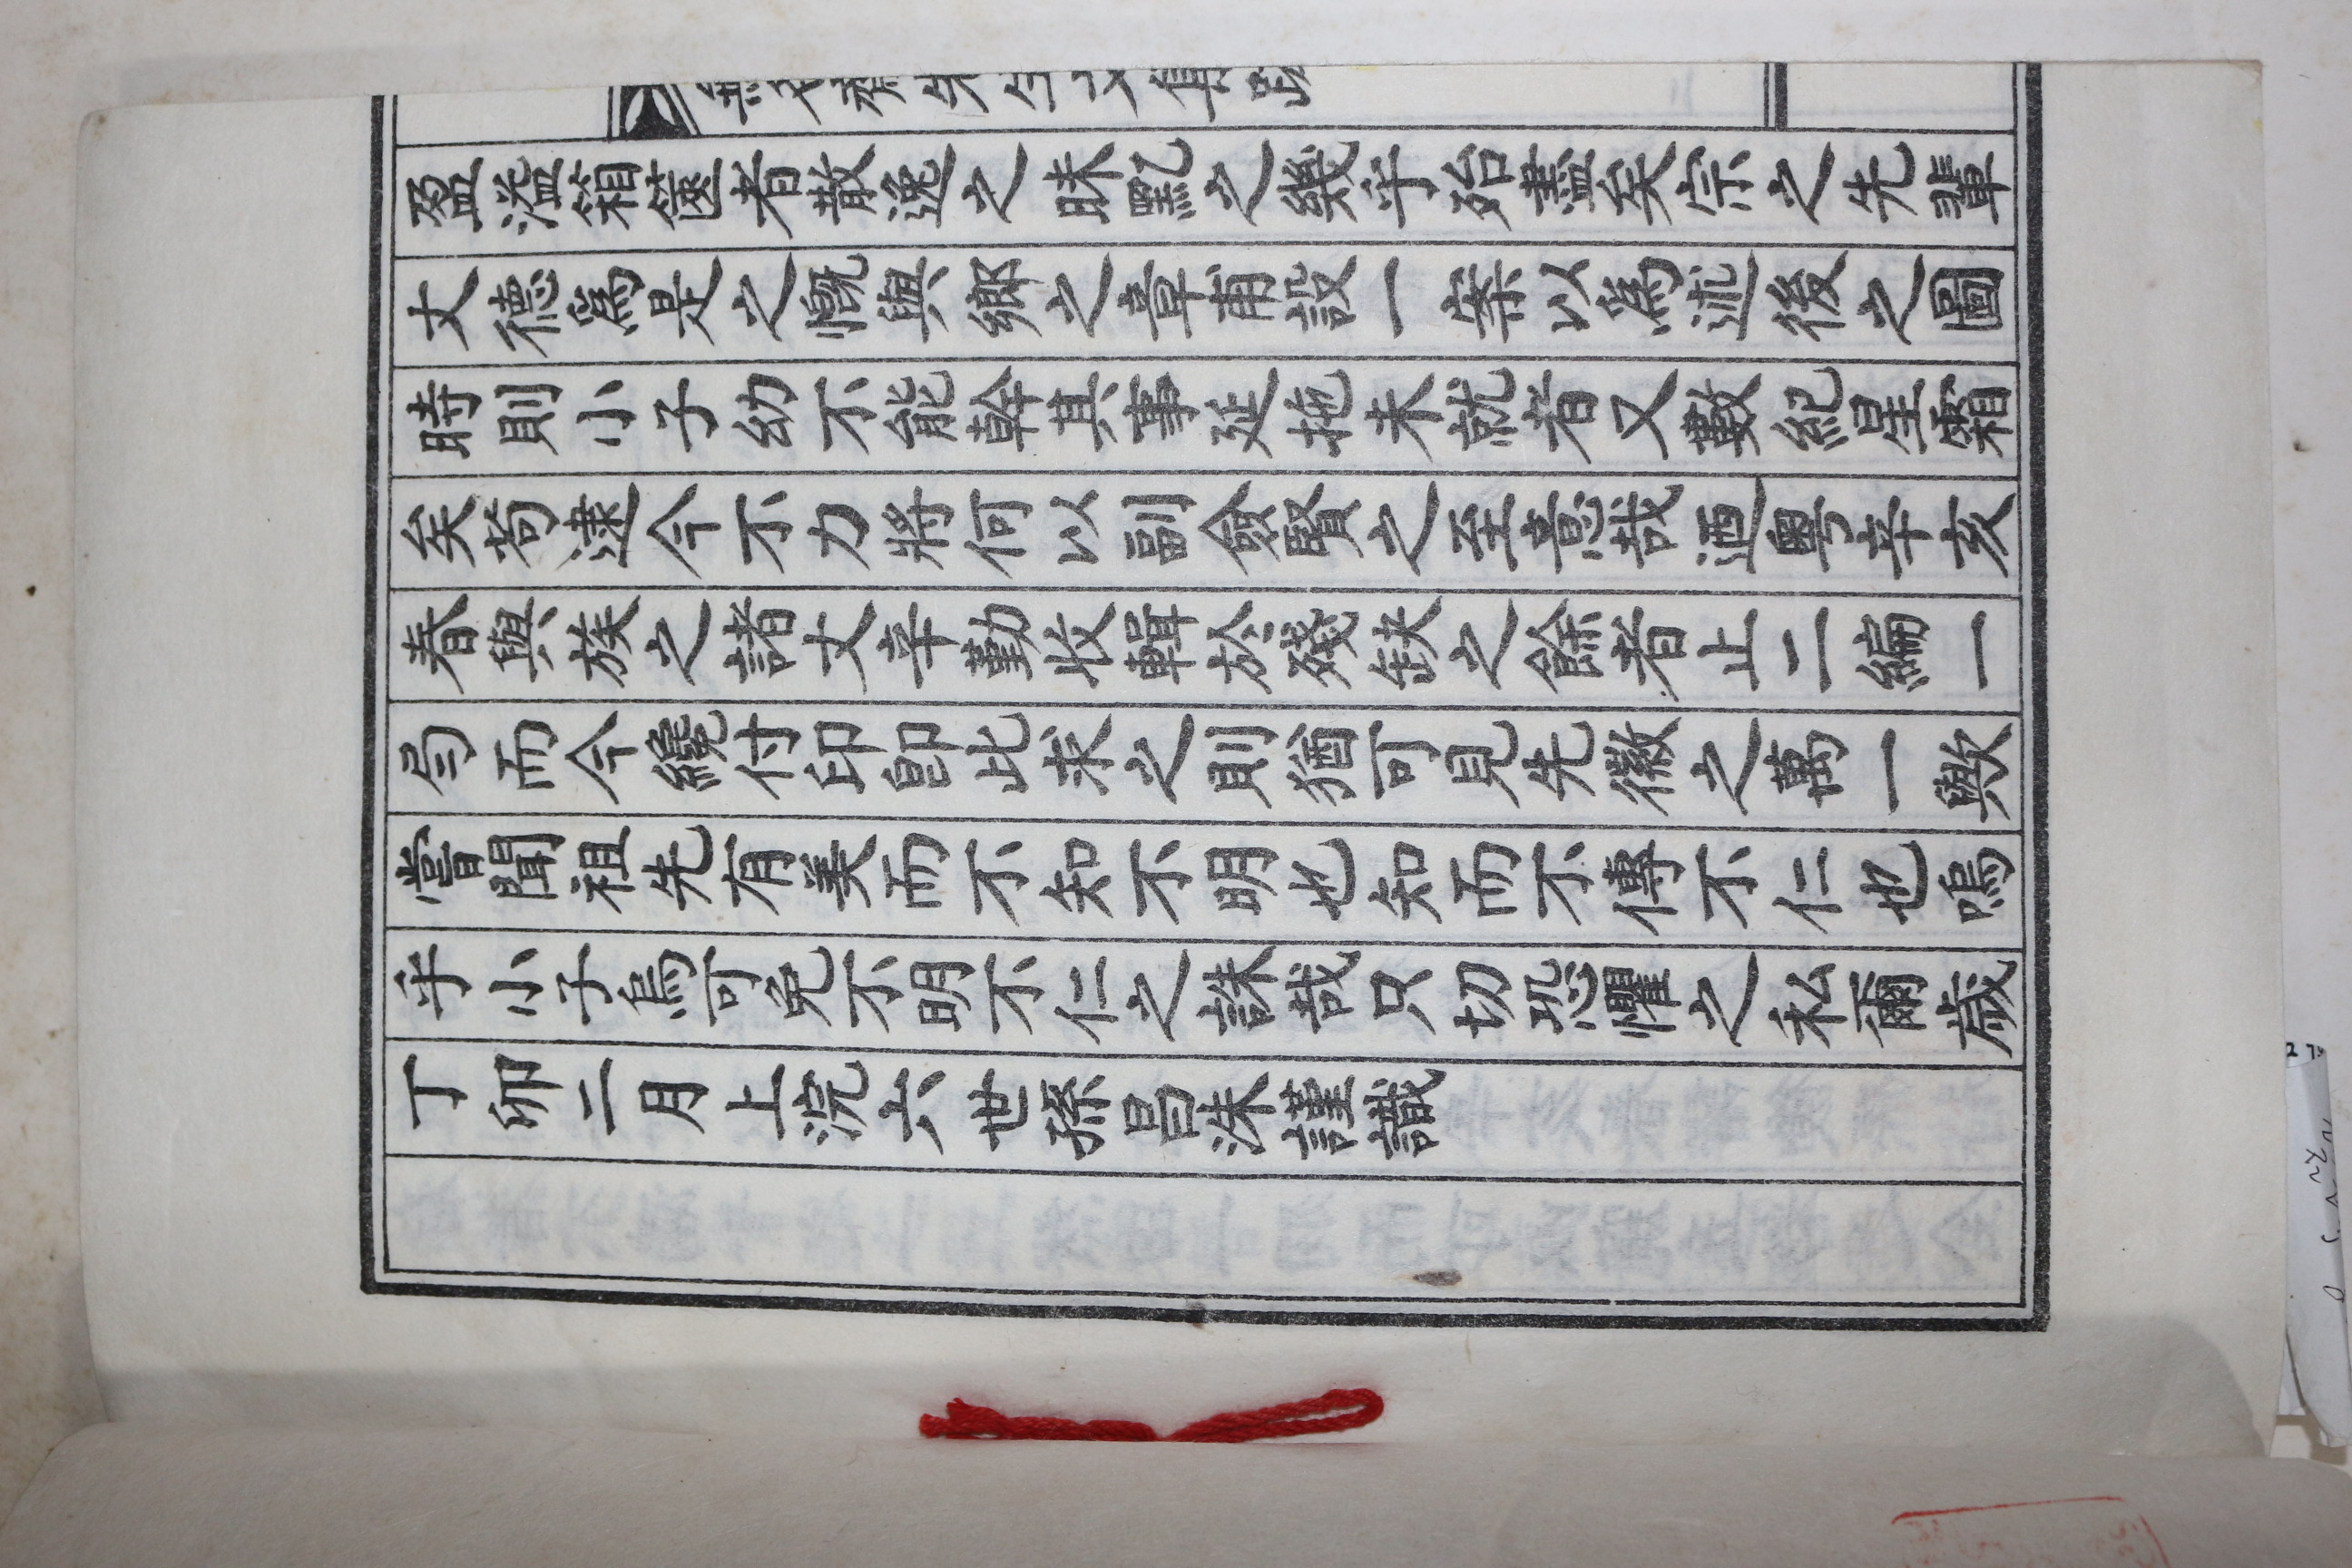 盈溢箱篋者散逸之昧㸃之幾乎殆盡矣宗之先輩
丈德爲是之慨與鄕之章甫設一案以爲述後之圖
時則小子幼不能幹其事延拖未就者又數紀星霜
矣苟逮今不力將何以副僉賢之至意哉迺粤辛亥
春與族之諸丈辛勤收輯於殘缺之餘者止二編一
局而今纔付印卽此求之則猶可見先徽之萬一歟
嘗聞祖先有美而不知不明也知而不傳不仁也嗚
乎小子烏可免不明不仁之誅哉只切恐懼之私爾歲
丁卯二月上浣六世孫昌洙謹識
齋先生文集跋
二